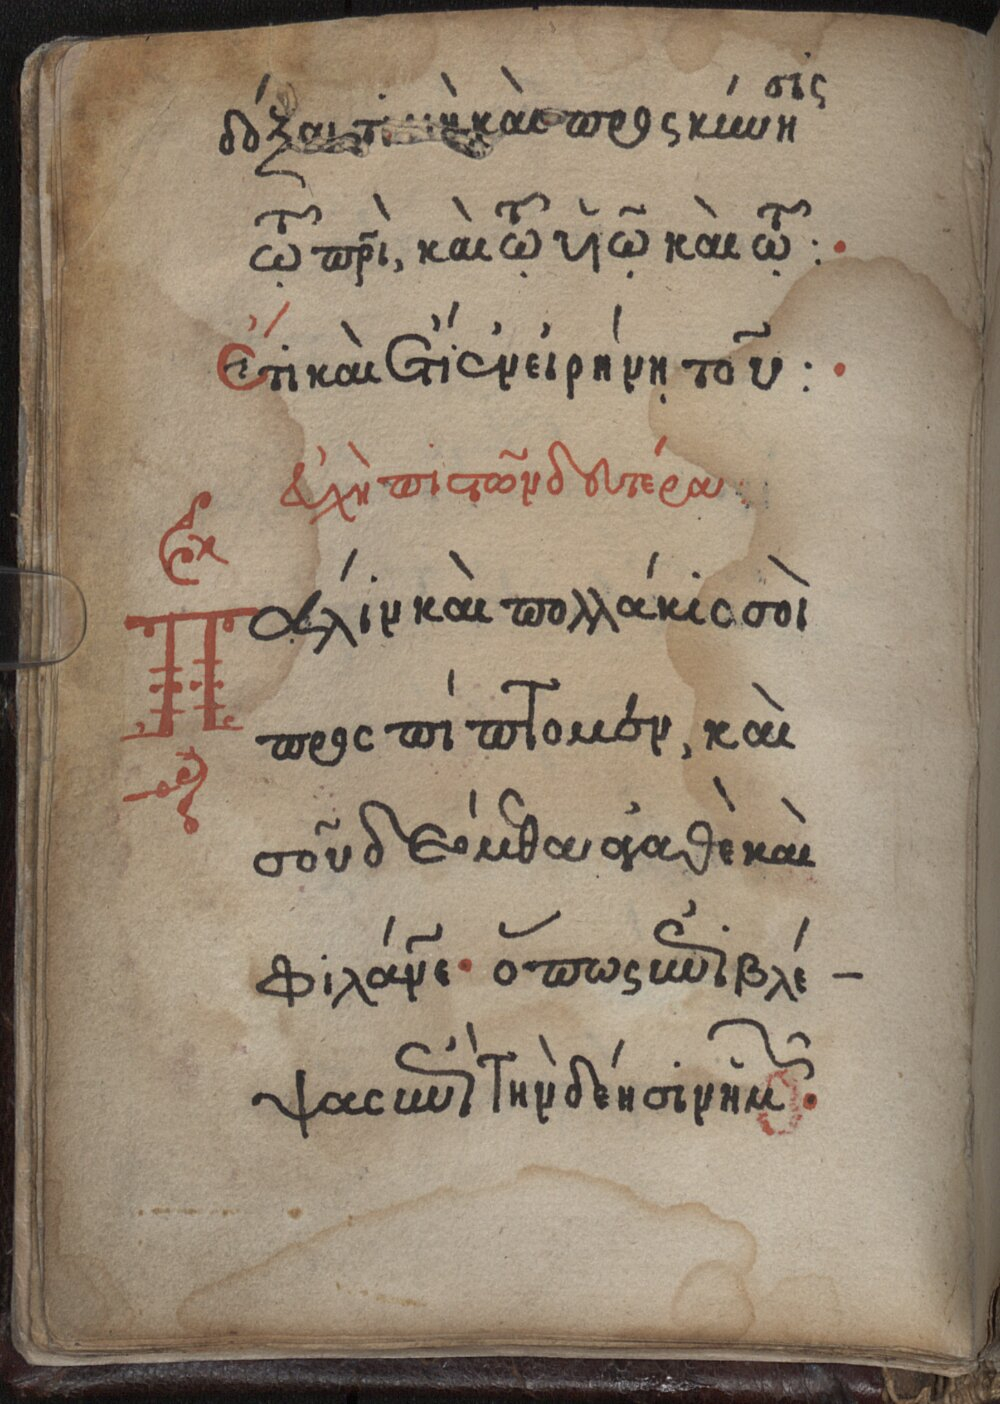 δόξα τιμὴ καὶ προσκύνησις
τῷ πρὶ, καὶ τῷ υἱῷ καὶ τῷ :
Ἔτι καὶ ἔτι ἐν εἰρήνῃ τοῦ :
Εὐχὴ πιστῶν δευτέρα
Πάλιν καὶ πολλάκις σοὶ
προσπίπτομεν, καὶ
σοῦ δεόμεθα ἀγαθὲ καὶ
φιλάνε · ὅπως ἐπιβλέ –
ψας ἐπὶ τὴν δέησιν ἡμῶν ·